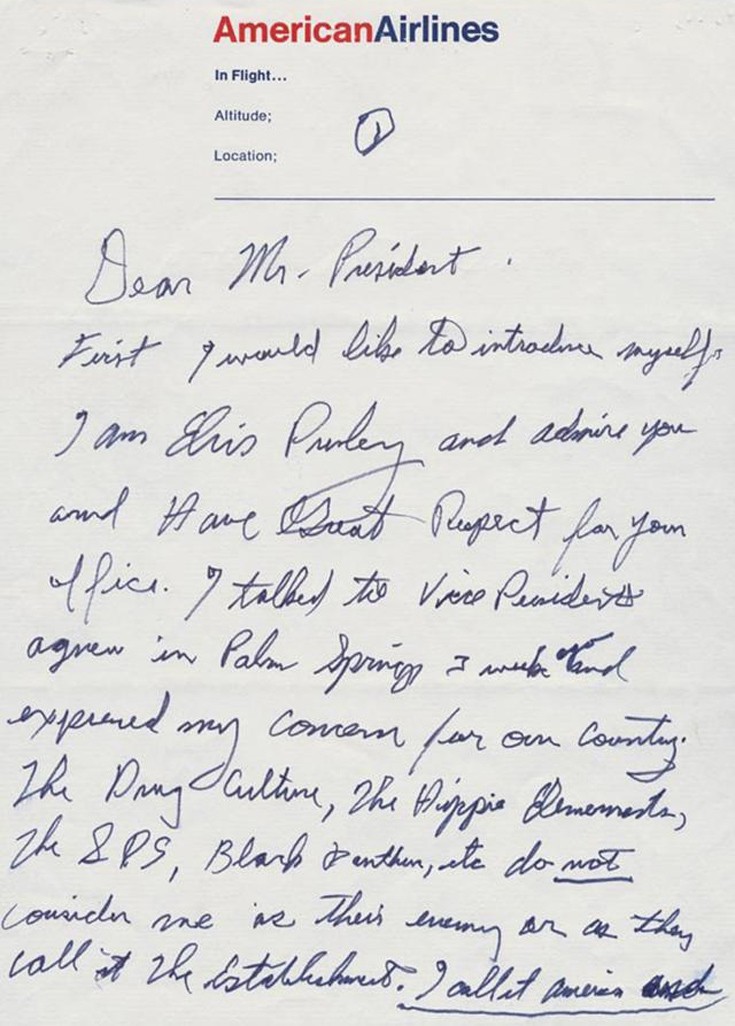 AmericanAirlines
In Flight...
Altitude;
Location;
1
Dear Mr. President.
First I would like to introduce myself.
I am Elvis Presley and admire you
and Have Great Respect for your
office. I talked to Vice President
agnew in Palm Springs 3 weeks ago and
expressed my concern for our country.
The Drug Culture, The Hippie Elements,
the SDS, Black Panthers, etc do not
consider me as their enemy or as they
call it The Establishment. I call it america and